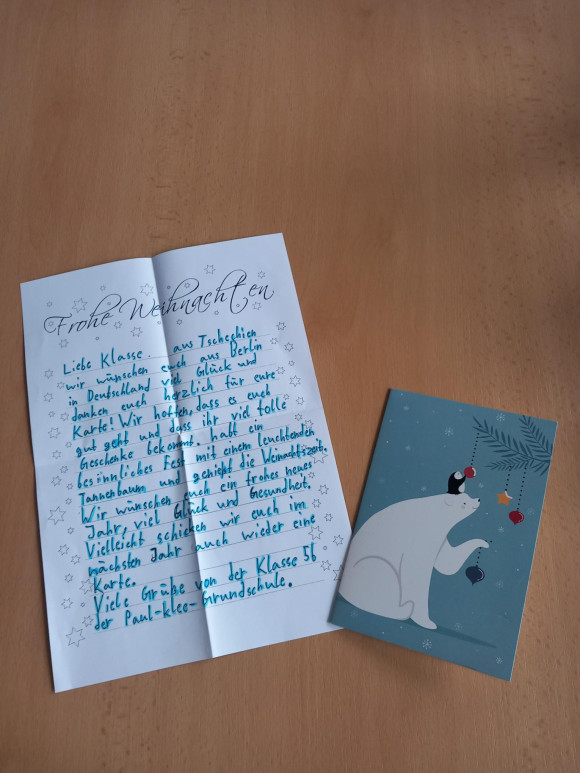 Frohe Weihnachten
Liebe Klasse. aus Tschechien
wir wünschen euch aus Berlin
in Deutschland viel Glück und
danken euch herzlich für eure
Karte! Wir hoffen, dass es euch
gut geht und dass ihr viel tolle
Geschenke bekommt. habt ein
besinnliches Fest mit einem leuchtenden
Tannenbaum und genießt die Weihnachtszeit.
Wir wünschen euch ein frohes neues
Jahr, viel Glück und Gesundheit.
Vielleicht schicken wir euch im
nächsten Jahr auch wieder eine
Karte.
Viele Grüße von der Klasse 5b
der Paul-klee-Grundschule.